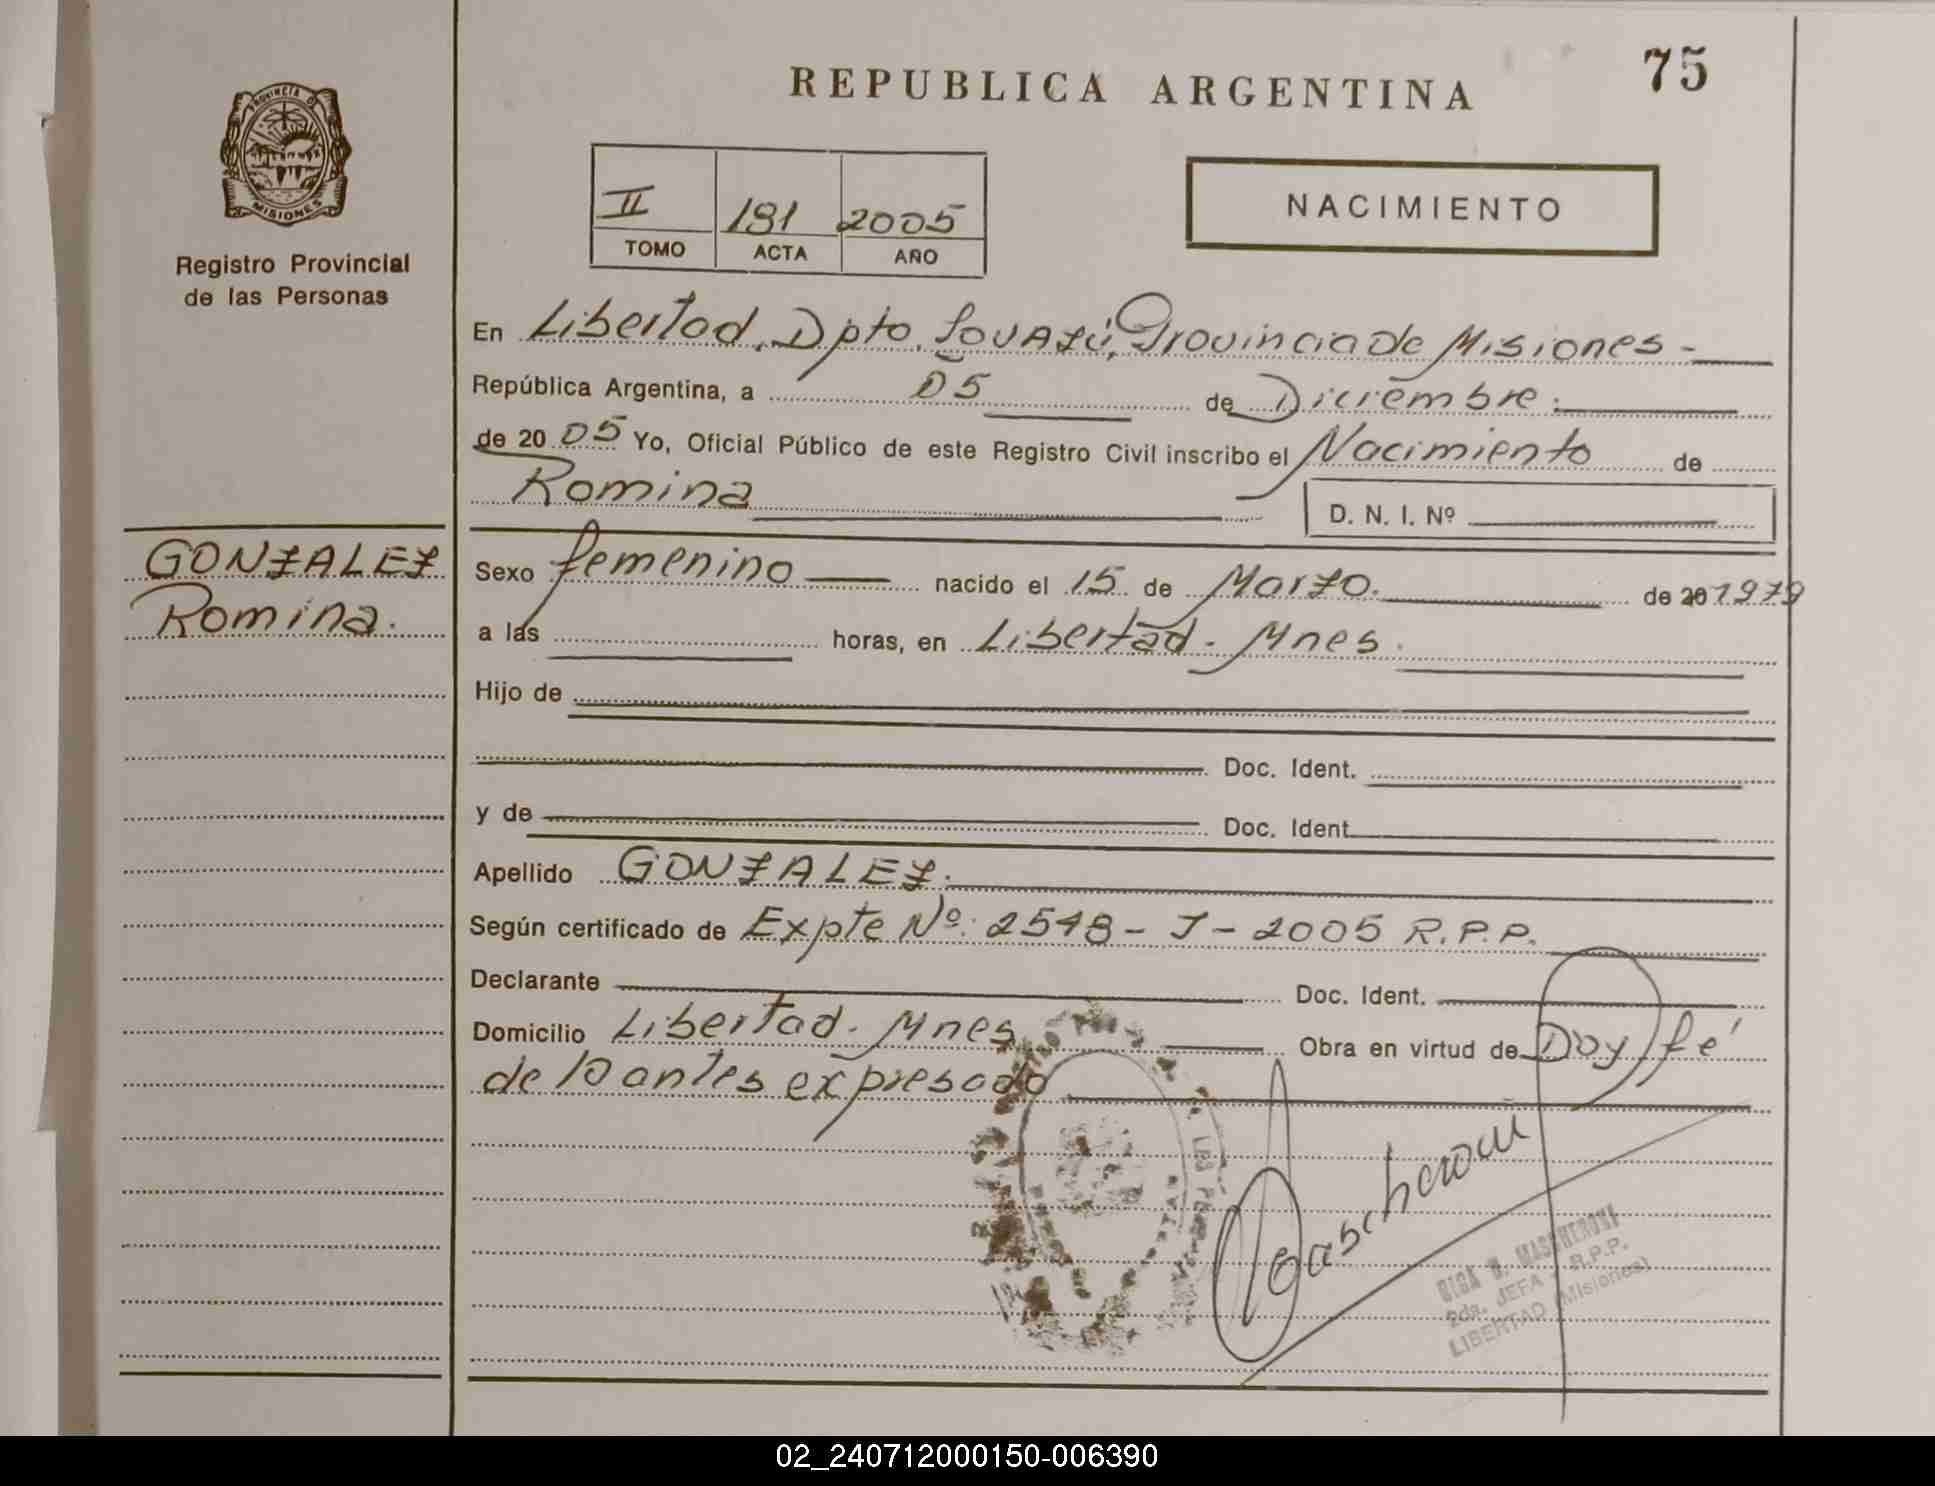 REPUBLICA ARGENTINA
75
PROVINCIA DE MISIONES
Registro Provincial
de las Personas
II 181 2005
TOMO ACTA AÑO
NACIMIENTO
En Libertad, Dpto. Iguazú, Provincia de Misiones -
República Argentina, a 05 de Diciembre.
de 2005 Yo, Oficial Público de este Registro Civil inscribo el Nacimiento de
Romina
D. N. I. Nº
GONZALEZ
Romina.
Sexo femenino nacido el 15 de Marzo. de 20 1979
a las horas, en Libertad - Mnes.
Hijo de
Doc. Ident.
y de Doc. Ident.
Apellido GONZALEZ.
Según certificado de Expte Nº: 2548 - J - 2005 R.P.P.
Declarante Doc. Ident.
Domicilio Libertad - Mnes Obra en virtud de Doy fé
de lo antes expresado
Mascheroni
OLGA B. MASCHERONI
2da. JEFA R.P.P.
LIBERTAD (Misiones)
02_240712000150-006390